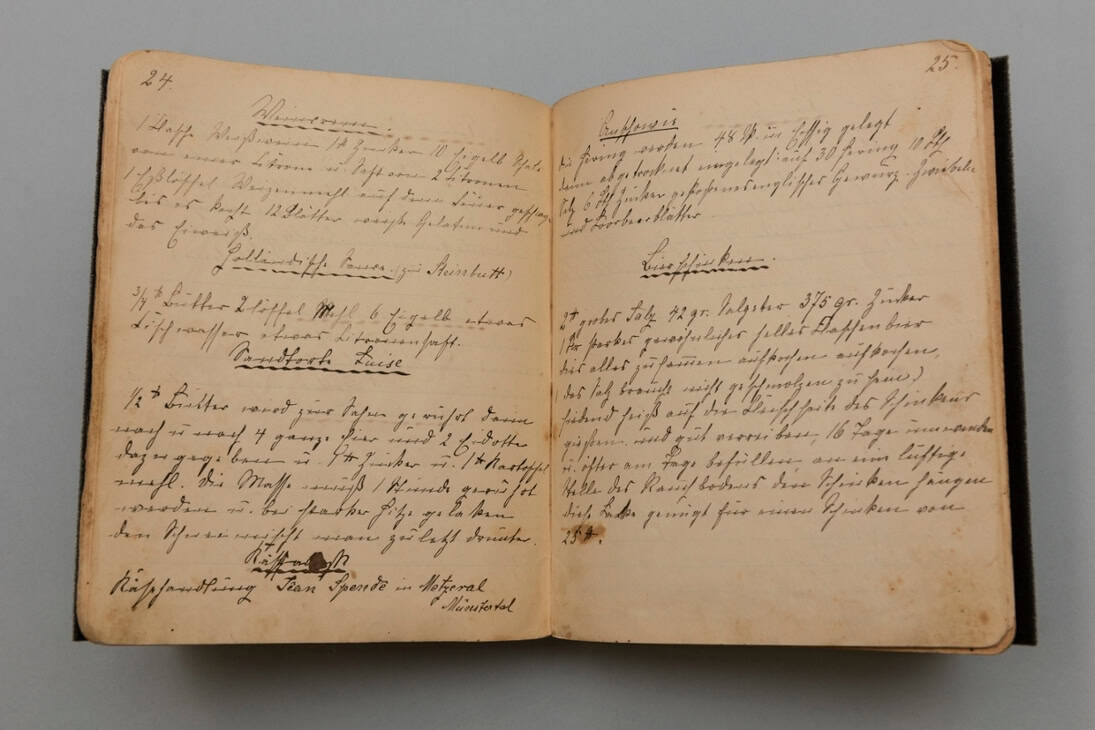 24.
Weincreme.
1 Flasche Weißwein 1 ℔ Zucker 10 Eigelb Schale
von einer Citrone u. Saft von 2 Citronen
1 Eßlöffel Weizenmehl auf dem Feuer geschlagen
bis es kocht 12 Blätter weiße Gelatine und
das Eiweiß.
Holländische Sauce. (zu Steinbutt)
3/4 ℔ Butter 2 Löffel Mehl 6 Eigelb etwas
Fischwasser etwas Citronensaft.
Sandtorte Luise
1/2 ℔ Butter wird zur Sahne gerührt dann
nach u nach 4 ganze Eier und 2 Eidotter
dazugegeben u. 1 ℔ Zucker u. 1 ℔ Kartoffel
mehl. Die Masse muß 1 Stunde gerührt
werden u. bei starker Hitze gebacken
den Schnee mischt man zuletzt drunter.
Käsehandlung Jean Spende in Metzeral
Münstertal
25.
die Hering werden 48 St. in Essig gelegt
dann abgetrocknet eingelegt: auf 30 Hering 10 Lth
Salz 6 Lth Zucker gestoßenes englisches Gewürz. Zwiebeln
und Loorbeerblätter
Bierschinken.
2 ℔ gutes Salz 42 gr. Salpeter 375 gr. Zucker
1 Ltr starkes gewöhnliches helles Flaschenbier
dies alles zusammen aufkochen aufkochen,
(das Salz braucht nicht geschmolzen zu sein)
siedend heiß auf die Fleischseite des Schinkens
gießen und gut verreiben, 16 Tage umwenden
u. öfter am Tage befüllen an ein luftige
Stelle des Rauchbodens den Schinken hangen
diese genügt für einen Schinken von
25 ℔.